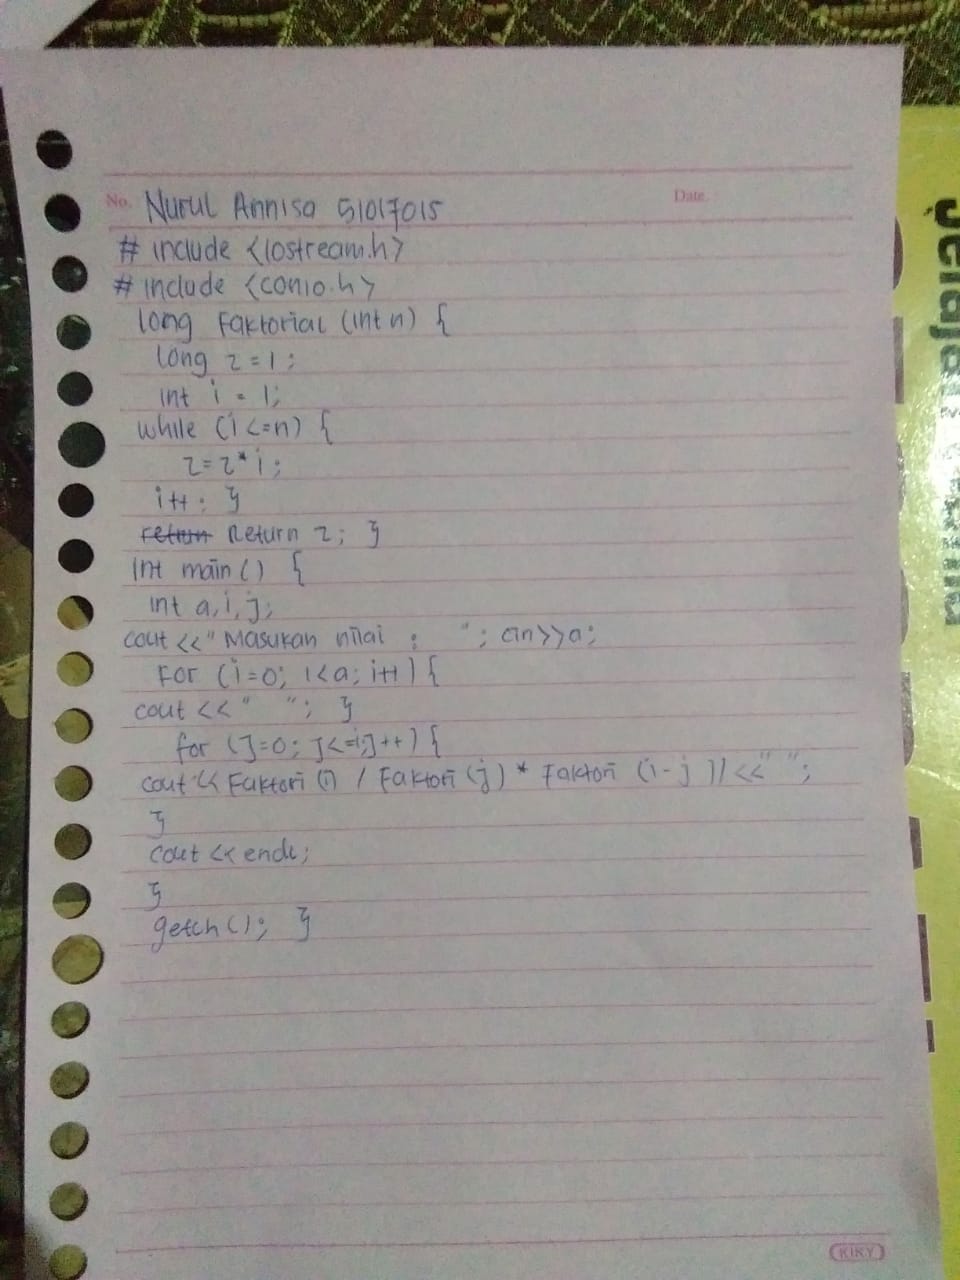 No. Nurul Annisa 51017015
Date.
# include <iostream.h>
# include <conio.h>
long Faktorial (int n) {
long z = 1 ;
int i = 1;
while (i <=n) {
z=z* i ;
i++ ; }
Return z; }
int main () {
int a, i, j;
cout << " Masukan nilai : "; cin>>a;
For (i=0; i<a; i++) {
cout << " "; }
for (j=0; j<=i;j++) {
cout << Faktori (i) / Faktori (j) * Faktori (i-j )) << " ";
}
cout << endl;
}
getch (); }
KIKY